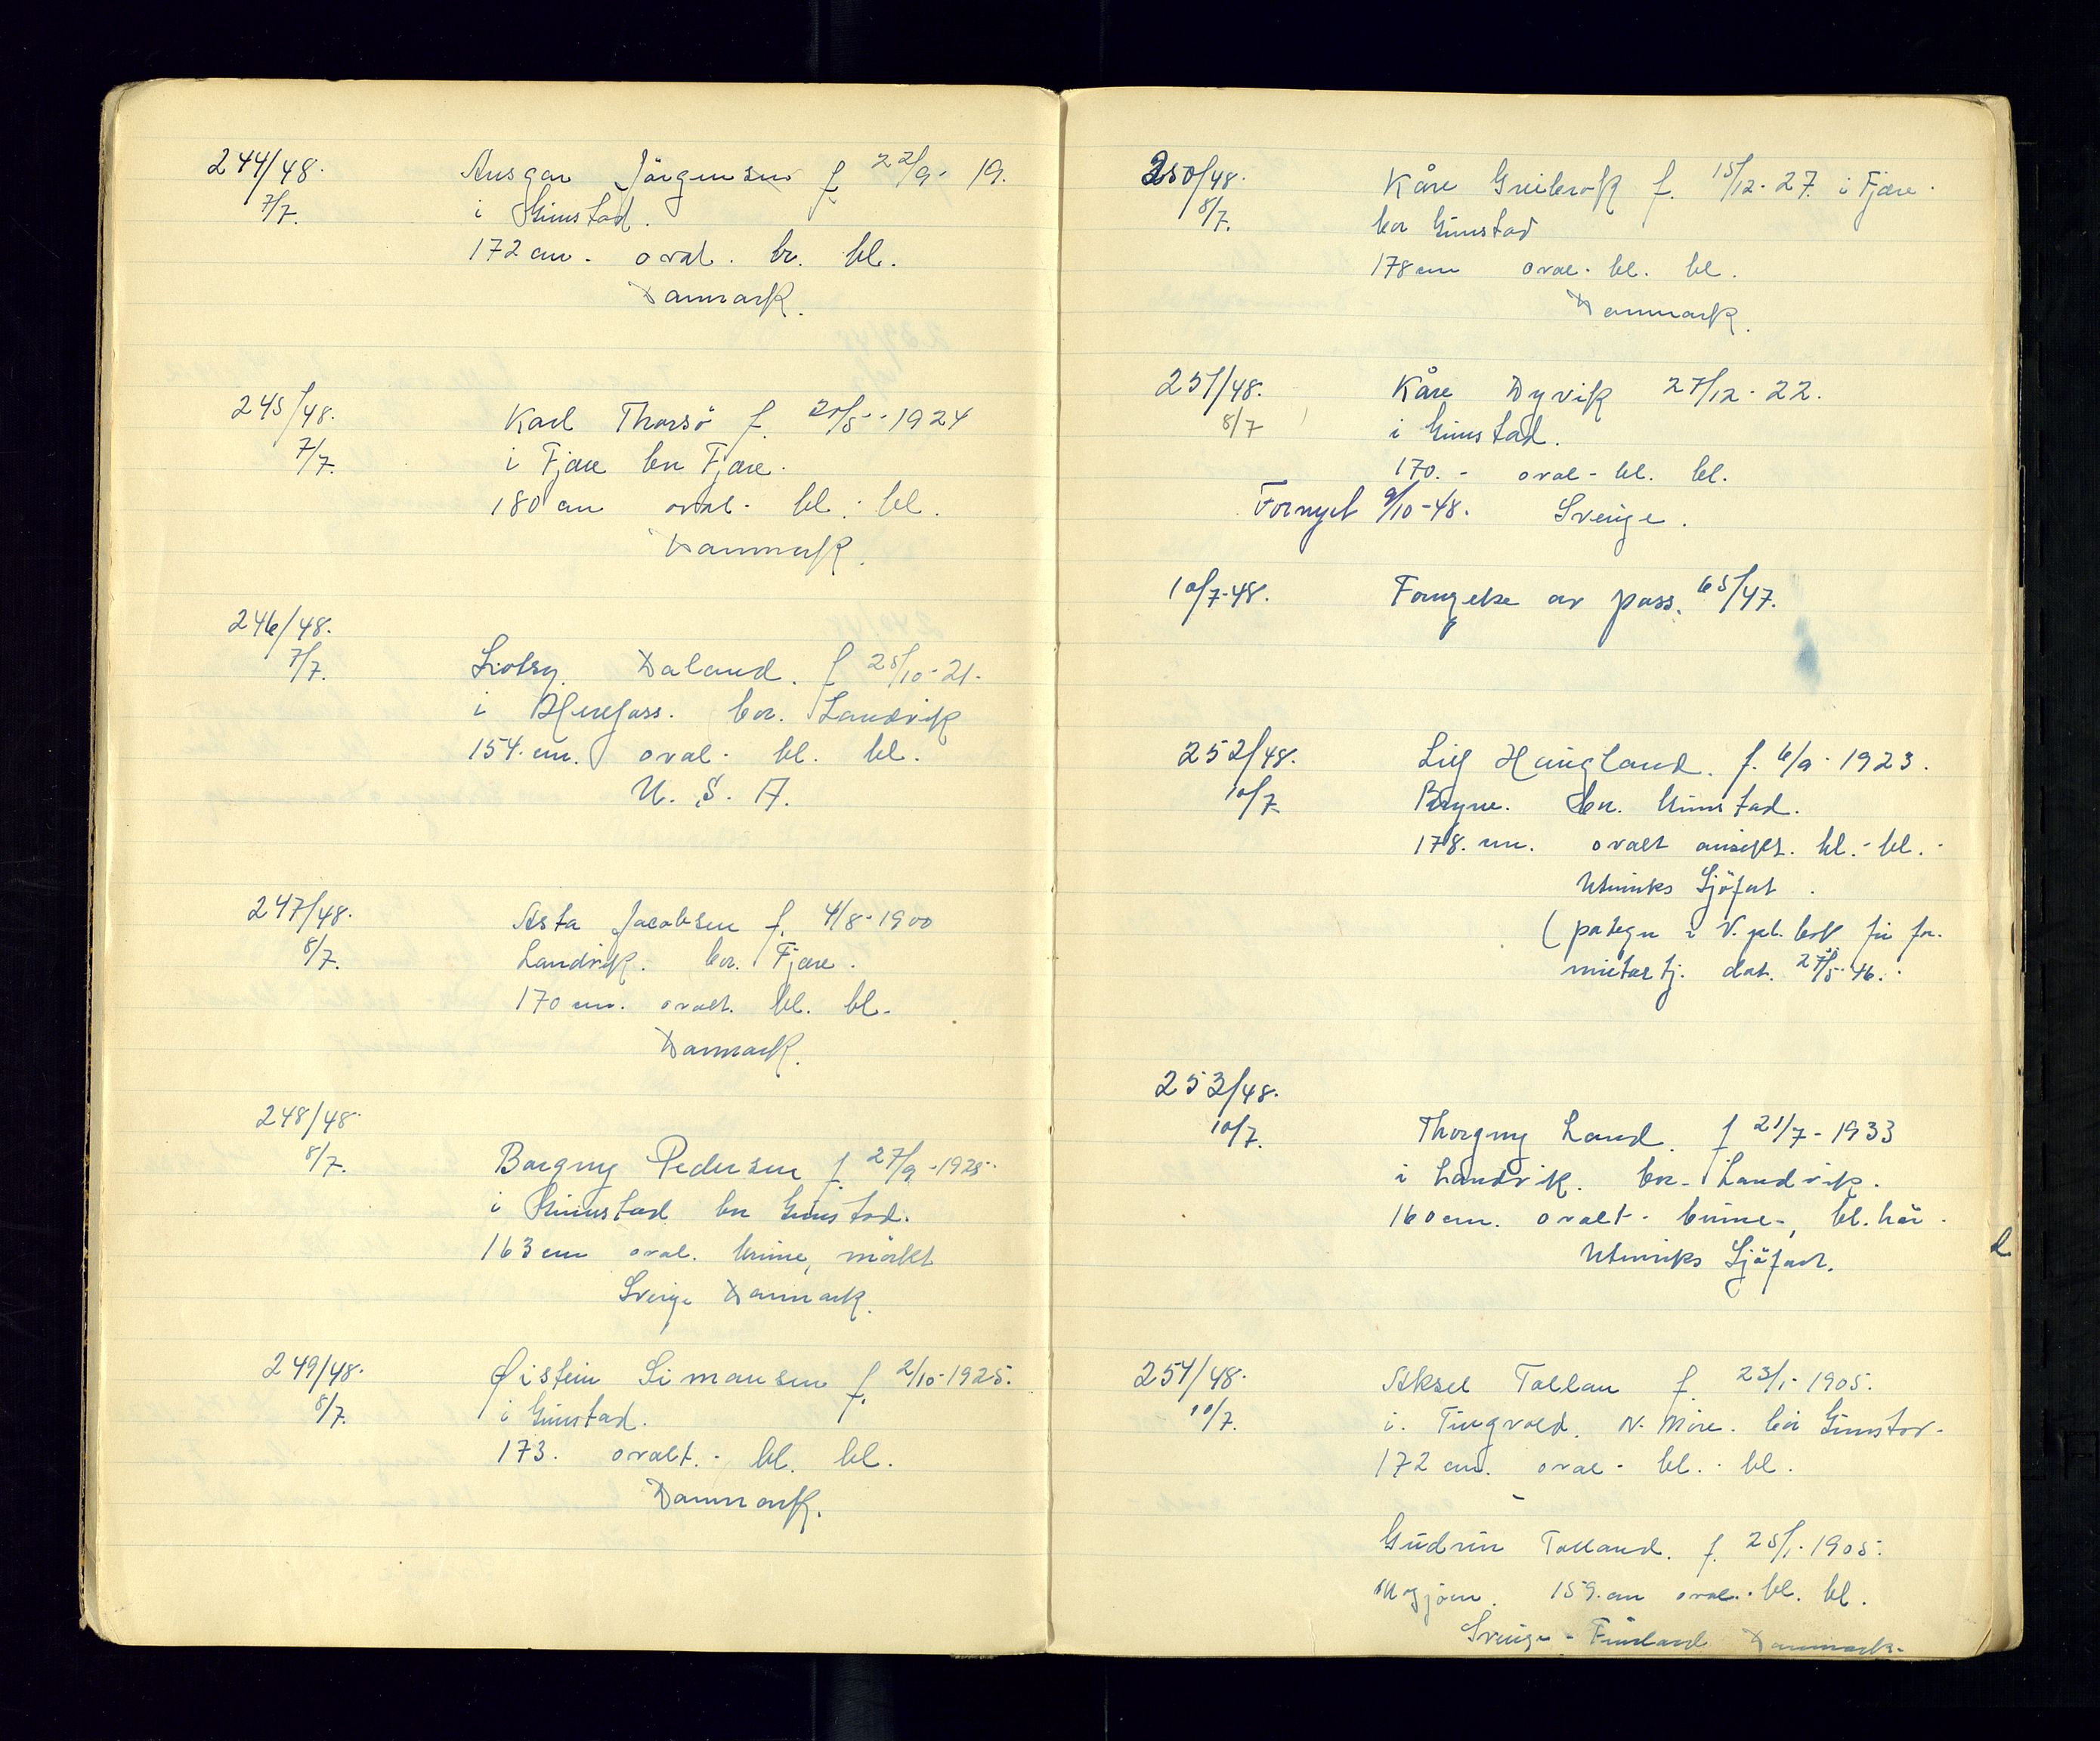 244/48.
7/7.
Ansgar Jörgensen f 22/9- 19.
i Grimstad.
172 cm. oval. br. bl.
Danmark.
245/48.
7/7.
Karl Thorsö f. 20/5-1924
i Fjære bor Fjære.
180 cm oval. bl. bl.
Danmark.
246/48.
7/7.
Daland. f 25/10-21.
i Herefoss. bor. Landvik
154. cm. oval. bl. bl.
U. S. A.
247/48.
8/7.
Asta Jacobsen f. 4/8-1900
Landvik. bor. Fjære.
170 cm. ovalt. bl. bl.
Danmark.
248/48.
8/7.
Borgny Pedersen f. 27/9-1925.
i Grimstad bor Grimstad.
163 cm oval. brune, mörkt
Sverige Danmark.
249/48.
8/7.
Øistein Simonsen f. 2/10-1925.
i Grimstad.
173. ovalt. bl. bl.
Danmark.
250/48.
8/7.
Kåre Greibrok f. 15/12-27. i Fjære.
bor Grimstad
178 cm oval. bl. bl.
Danmark.
251/48.
8/7
Kåre Dyvik 27/12-22.
i Grimstad.
170. - oval - bl. bl.
Fornyet 9/10-48. Sverige.
10/7-48. Fornyelse av pass. 65/47.
252/48.
10/7.
Leif Haugland. f. 6/9-1923.
Bryne. bor. Grimstad.
178. cm. ovalt ansikt. bl. - bl.
Utenriks Sjöfart.
(påtegn i V. pl. bok for
dat. 27/5-46.
253/48.
10/7.
Thorgny Land. f 21/7-1933
i Landvik. bor. Landvik.
160 cm. ovalt - brune-, bl. hår.
Utenriks Sjöfart.
254/48.
10/7.
Aksel Tallau f. 23/1-1905.
i. Tingvold. N. Möre. bor Grimstad.
172 cm. oval - bl. bl.
Gudrun Talland. f. 25/1-1905.
159. cm oval. bl. bl.
Sverige - Finland Danmark.